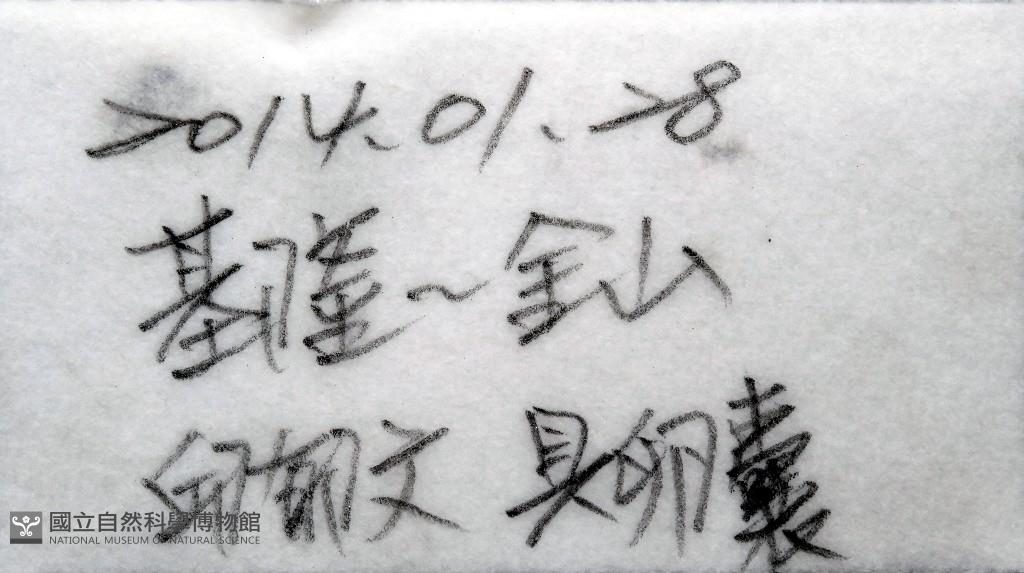 2014.01.28
基隆~金山
文 具卵囊
國立自然科學博物館
NATIONAL MUSEUM OF NATURAL SCIENCE